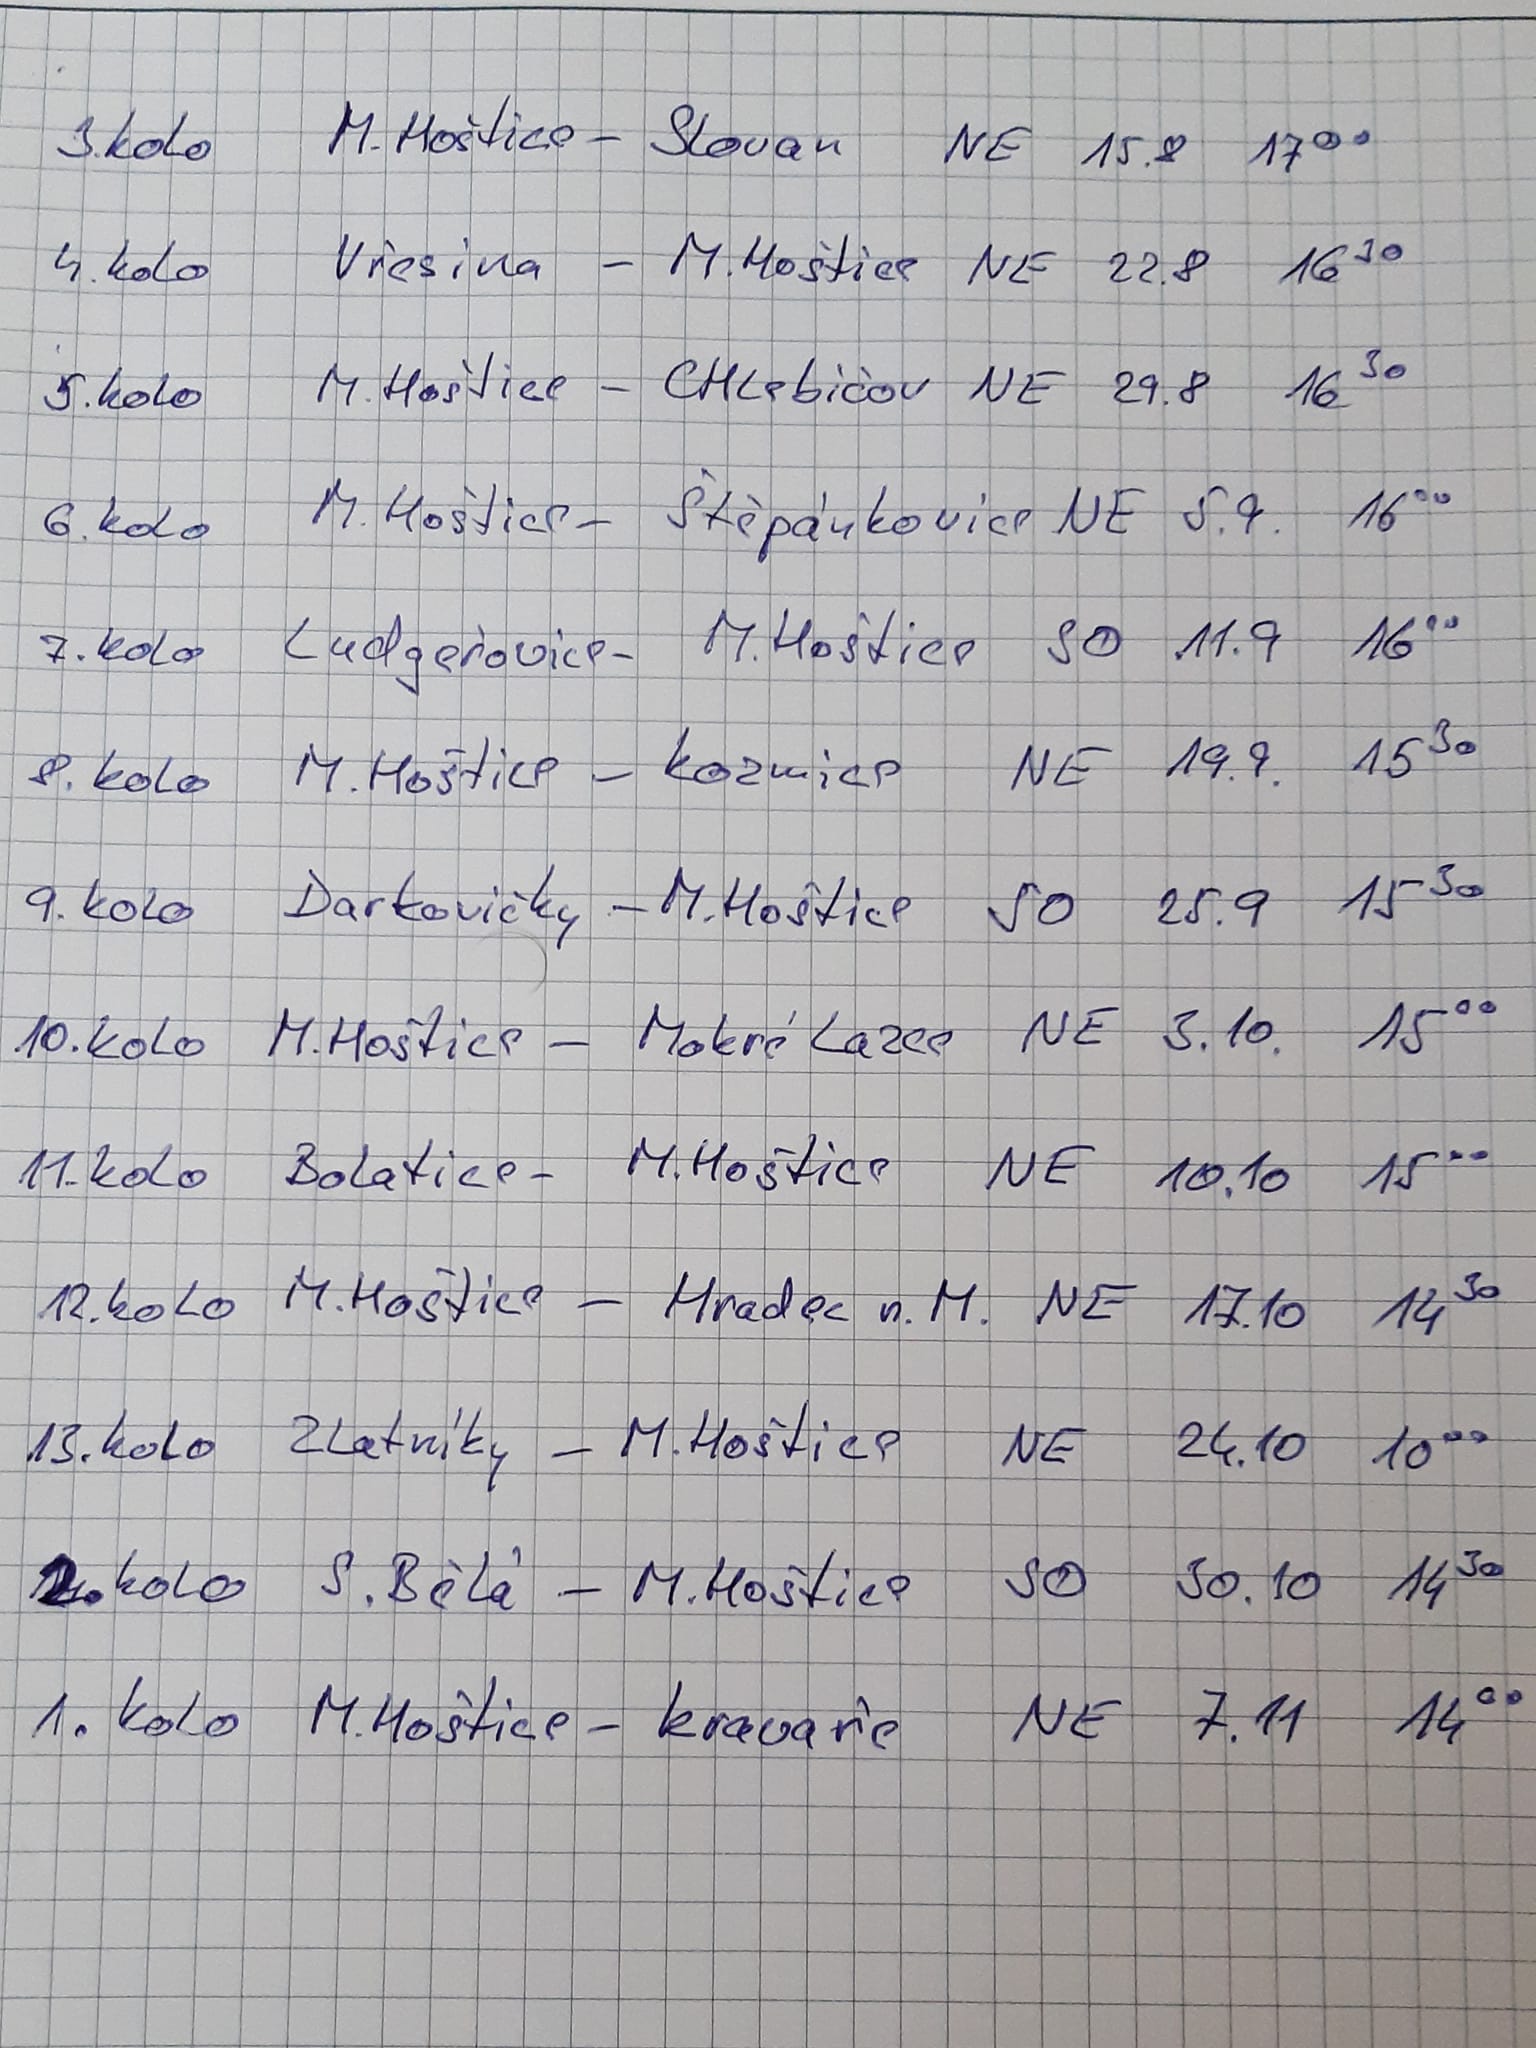 3.kolo M.Hoštice - Slovan NE 15.8 17⁰⁰
4.kolo Vřesina - M.Hoštice NE 22.8 16³⁰
5.kolo M.Hoštice - CHLebičov NE 29.8 16³⁰
6.kolo M.Hoštice - Štěpánkovice NE 5.9. 16⁰⁰
7.kolo Ludgeřovice - M.Hoštice SO 11.9 16⁰⁰
8.kolo M.Hoštice - kozmice NE 19.9. 15³⁰
9.kolo Darkovičky - M.Hoštice SO 25.9 15³⁰
10.kolo M.Hoštice - Mokré Lazce NE 3.10. 15⁰⁰
11.kolo Bolatice - M.Hoštice NE 10.10 15⁰⁰
12.kolo M.Hoštice - Hradec n.M. NE 17.10 14³⁰
13.kolo Zlatníky - M.Hoštice NE 24.10 10⁰⁰
2.kolo S.Bělá - M.Hoštice SO 30.10 14³⁰
1.kolo M.Hoštice - kravaře NE 7.11 14⁰⁰